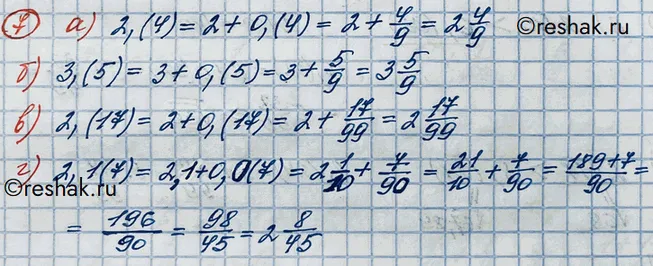 ©reshak.ru
7 а) 2,(4) = 2 + 0,(4) = 2 + 4/9 = 2 4/9
б) 3,(5) = 3 + 0,(5) = 3 + 5/9 = 3 5/9
в) 2,(17) = 2 + 0,(17) = 2 + 17/99 = 2 17/99
г) 2,1(7) = 2,1 + 0,0(7) = 2 1/10 + 7/90 = 21/10 + 7/90 = 189+7/90 =
= 196/90 = 98/45 = 2 8/45
©reshak.ru